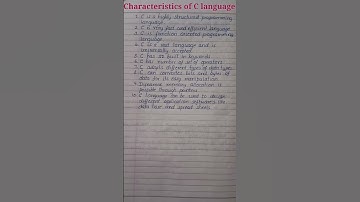 Characteristics of C language
1. C is a highly structured programming
language
2. C is very fast and efficient language
3. C is function oriented programming
language
4. C is a
language and is
universally accepted
5. C has 32 built in keywords
6. C has number of set of operators
7. C accepts different types of data types
8. C can manipulate bits and bytes of
data for its easy manipulation
9. Dynamic memory allocation is
possible through pointers
10. C language can be used to design
different application softwares like
data base and spread sheets